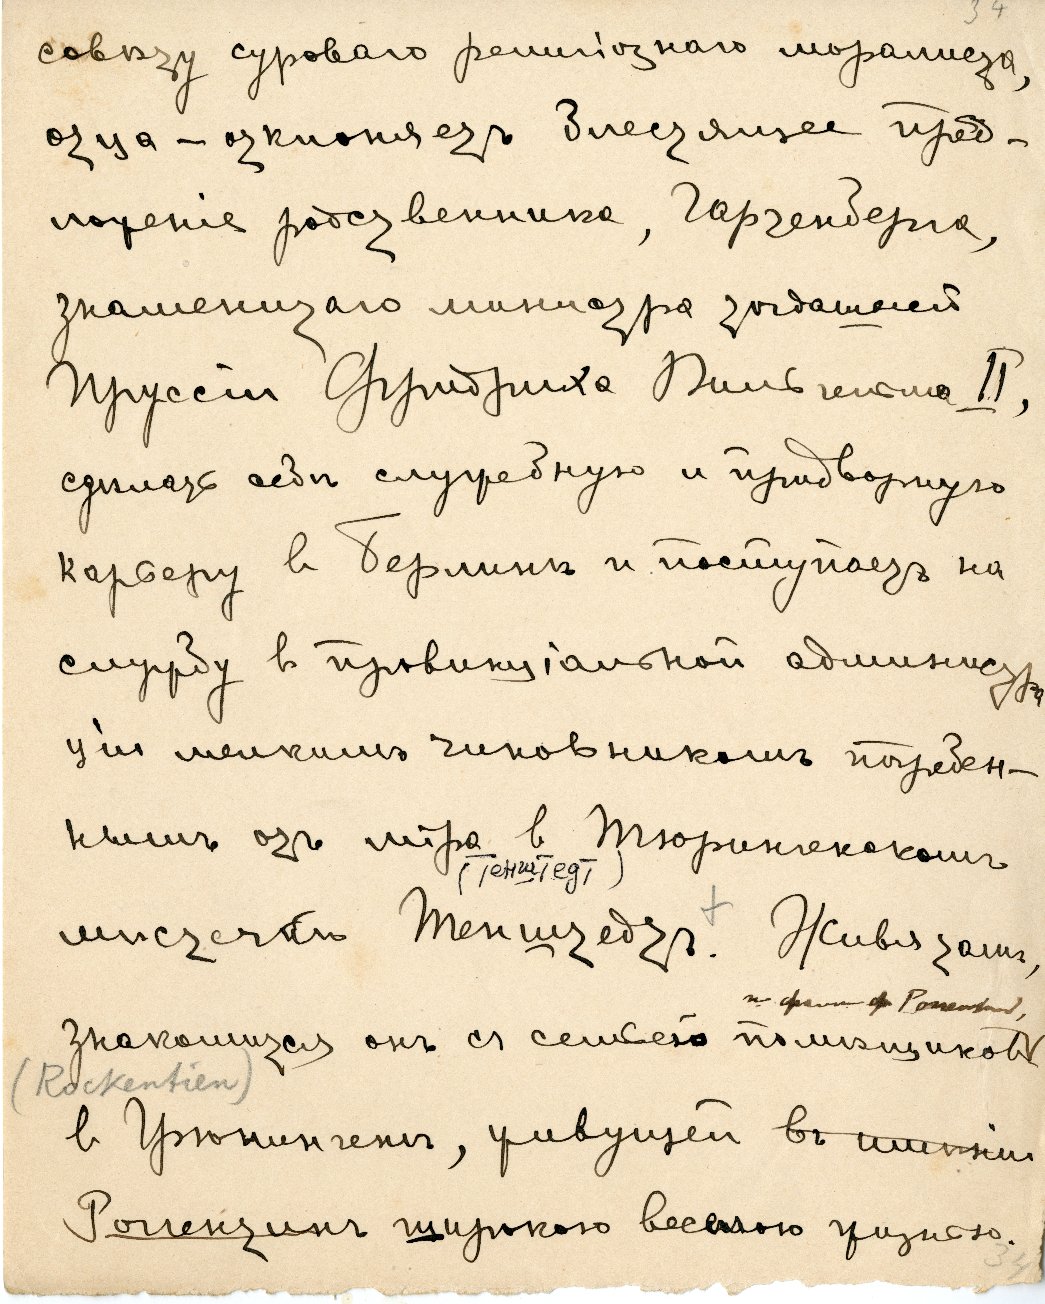 34
совѣту суроваго религіознаго моралиста,
отца – отклоняетъ блестящее пред-
ложеніе родственника, Гарденберга,
знаменитаго министра тогдашней
Пруссіи Фридриха Вильгельма II,
сдѣлать себѣ служебную и придворную
карьеру в Берлинѣ и поступаетъ на
службу в провинціальной администра
ціи мелкимъ чиновникомъ погребен-
нымъ отъ міра в Тюрингенскомъ
(Тенштедт)
мѣстечкѣ Тенштедтъ. + Живя тамъ,
по фам. ф. Рокентин,
знакомится онъ съ семьею помѣщиковъ
(Rockentien)
в Грюнингенѣ, живущей въ имѣніи
Рокентинъ широкою веселою жизнью.
34